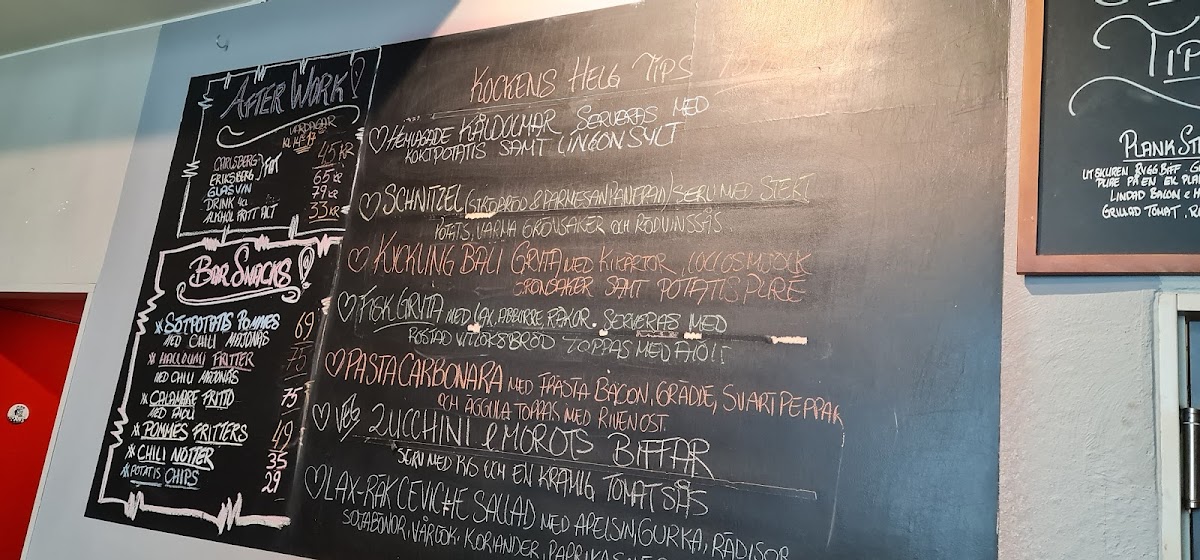 AFTER WORK!
VARDAGAR
KL 14-17
CARLSBERG } FAT 45 KR
ERIKSBERG
GLAS VIN 65 KR
DRINK 4CL 79 KR
ALKOHOL FRITT ALT 35 KR
BAR SNACKS!
* SÖTPOTATIS POMMES 69
MED CHILI MAJONÄS
* HALLOUMI FRITTER 75
MED CHILI MAJONÄS
* CALAMARE FRITTO 75
MED AIOLI
* POMMES FRITTERS 49
* CHILI NÖTTER 35
* POTATIS CHIPS 29
KOCKENS HELG TIPS
♡ HEMLAGADE KÅLDOLMAR SERVERAS MED
KOKTPOTATIS SAMT LINGONSYLT
♡ SCHNITZEL (STRÖBRÖD & PARMESAN PANERAD) SERV MED STEKT
POTATIS, VARMA GRÖNSAKER OCH RÖDVINSSÅS.
♡ KYCKLING BALI GRYTA MED KIKÄRTOR,
GRÖNSAKER SAMT POTATIS PURÉ
♡ FISK GRYTA MED LAX, RÄKOR. SERVERAS MED
ROSTAD VITLÖKSBRÖD TOPPAS MED AIOLI
♡ PASTA CARBONARA MED BACON, GRÄDDE, SVARTPEPPAR
OCH ÄGGULA TOPPAS MED RIVEN OST.
♡ VEG ZUCCHINI & MOROTS BIFFAR
SERV MED RIS OCH EN KRÄMIG TOMATSÅS
♡ LAX-RÄK CEVICHE SALLAD MED APELSIN, GURKA, RÄDISOR
SOJABÖNOR, VÅRLÖK, KORIANDER,
TIP
PLANK ST
UTSKUREN RYGG BIFF
PURE PÅ EN EK PLAN
LINDAD BACON &
GRILLAD TOMAT,